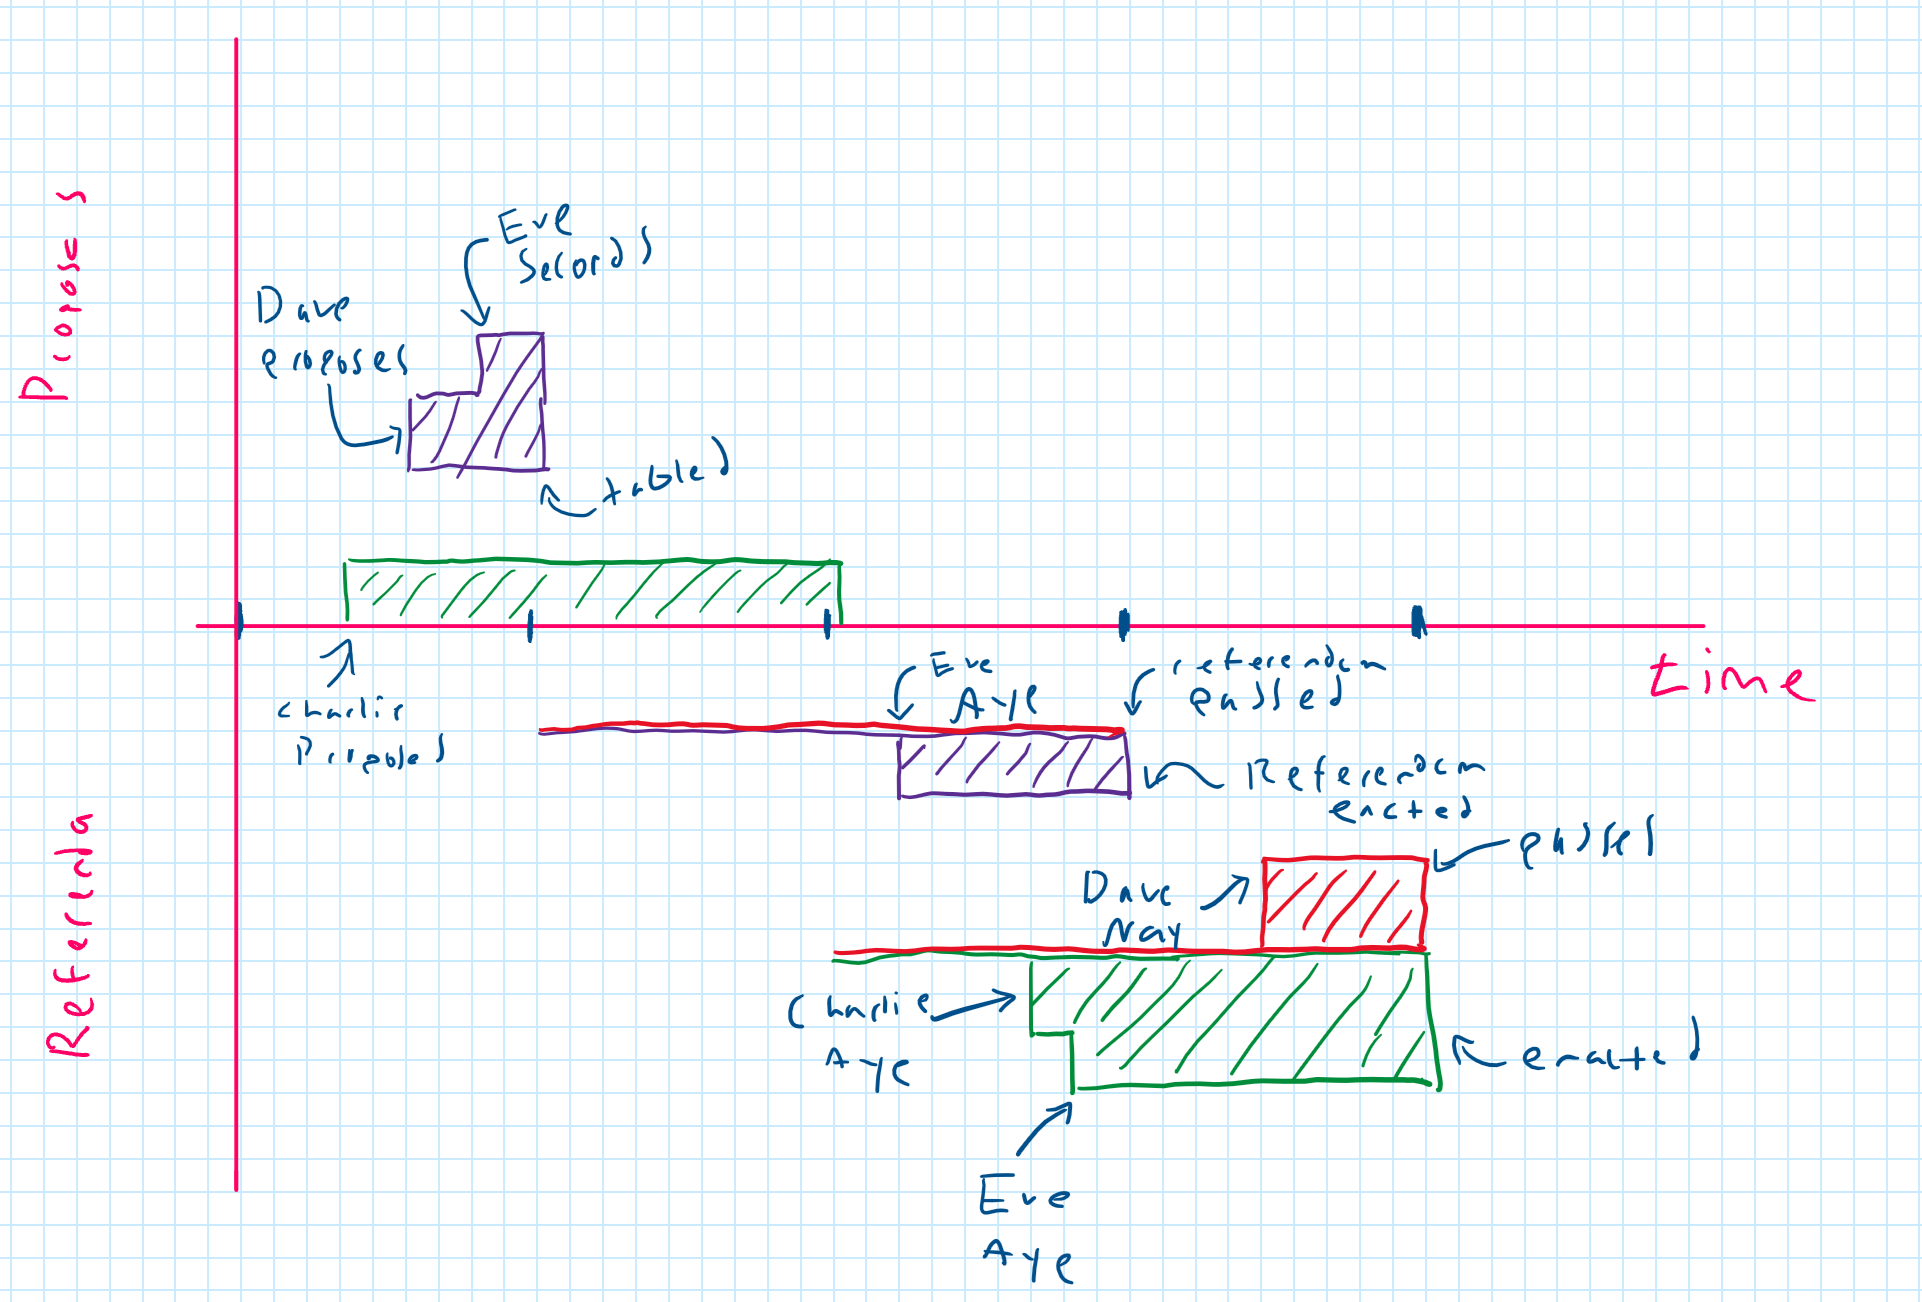 Proposes
Eve
Seconds
Dave
proposes
tabled
Charlie
Proposes
Eve
Aye
referendum
passed
time
Referendum
enacted
Referenda
passes
Dave
Nay
Charlie
Aye
enacted
Eve
Aye